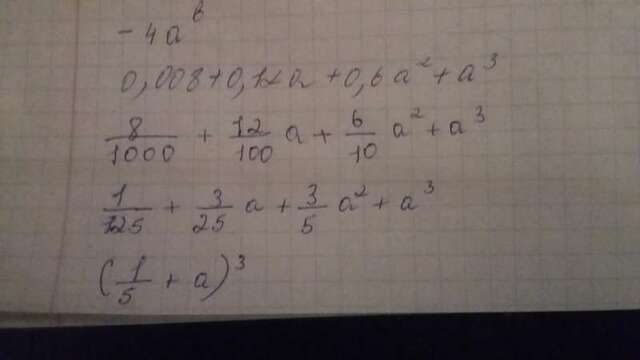 -4a⁶
0,008+0,12a+0,6a²+a³
8/1000 + 12/100 a + 6/10 a² + a³
1/125 + 3/25 a + 3/5 a² + a³
(1/5 + a)³